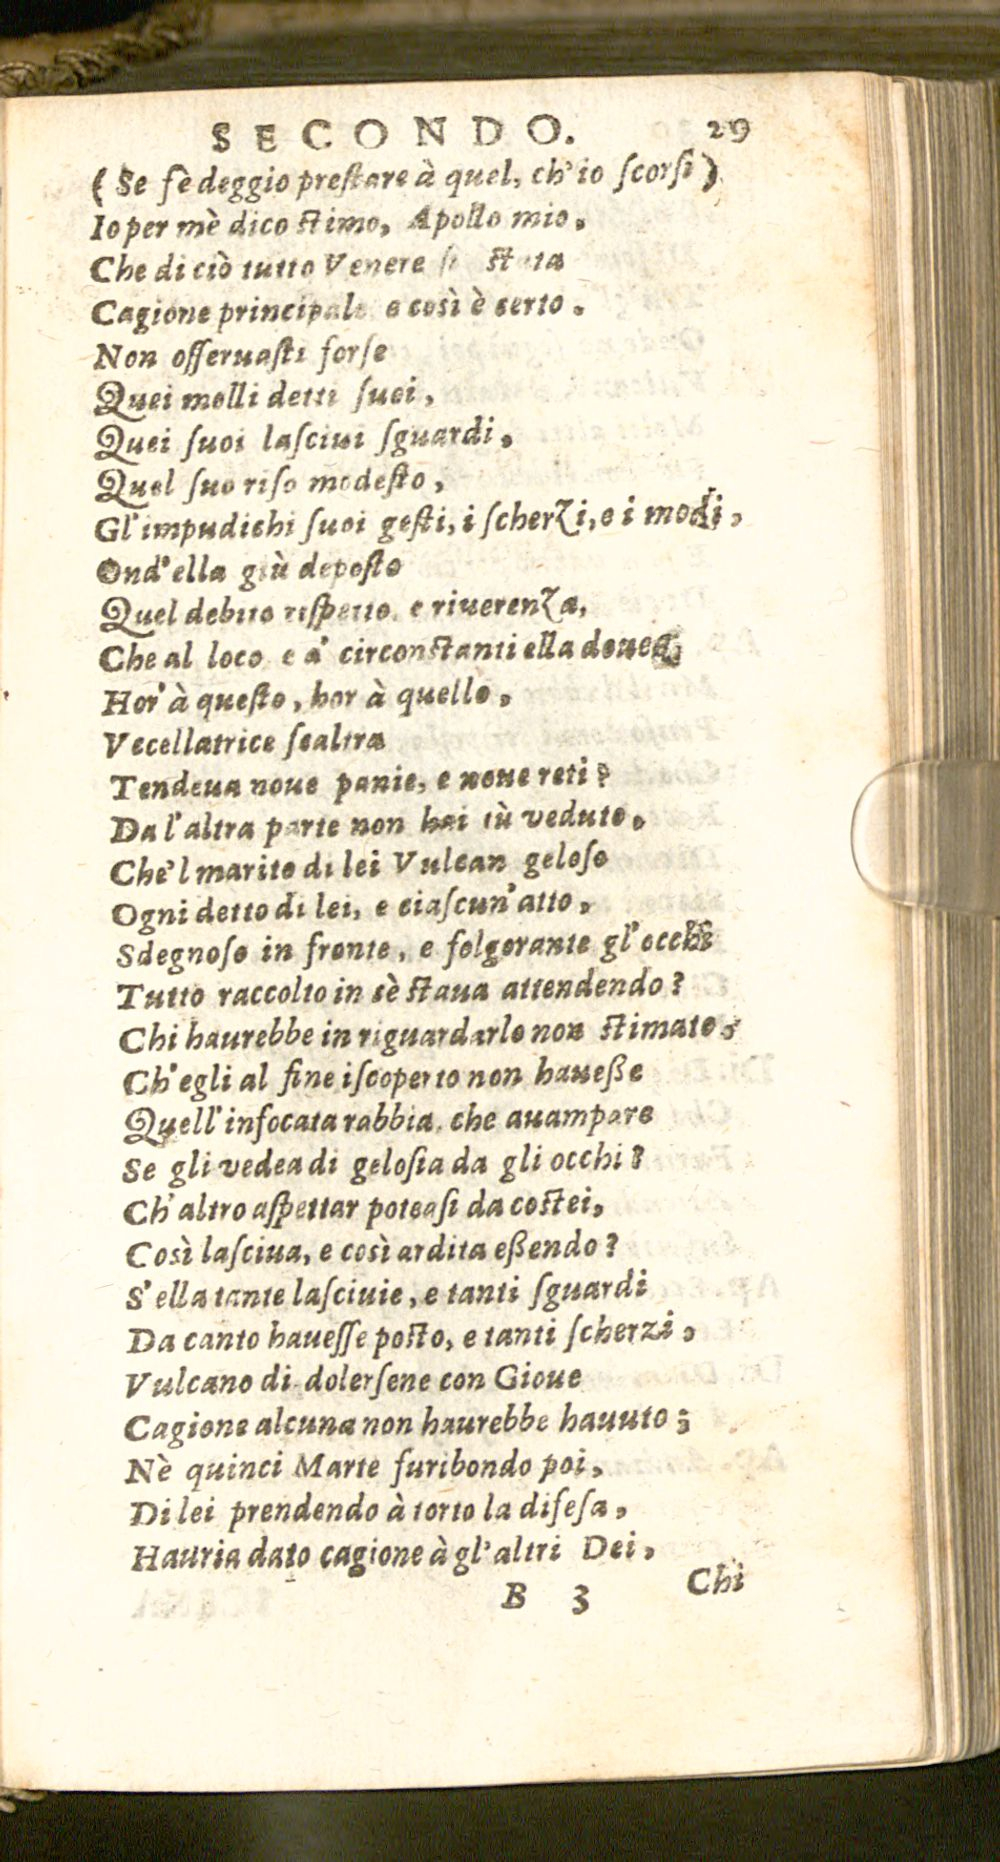 SECONDO. 29
(Se fè deggio preſtare à quel, ch'io ſcorſi)
Io per mè dico ſtimo, Apollo mio,
Che di ciò tutto Venere ſtata
Cagione principale e così è certo.
Non oſſeruaſti forſe
Quei molli detti ſuoi,
Quei ſuoi laſciui ſguardi,
Quel ſuo riſo modeſto,
Gl'impudichi ſuoi geſti, i ſcherzi, e i modi,
Ond'ella giù depoſto
Quel debito riſpetto, e riuerenza,
Che al loco e a' circonſtanti ella douea,
Hor' à queſto, hor à quello,
Vccellatrice ſcaltra
Tendeua noue panie, e noue reti?
Da l'altra parte non hai tù veduto,
Che'l marito di lei Vulcan geloſo
Ogni detto di lei, e ciaſcun'atto,
Sdegnoſo in fronte, e folgorante gl'occhi
Tutto raccolto in sè ſtaua attendendo?
Chi haurebbe in riguardarlo non ſtimato,
Ch'egli al fine iſcoperto non haueße
Quell'infocata rabbia, che auampare
Se gli vedea di geloſia da gli occhi?
Ch'altro aſpettar poteaſi da coſtei,
Così laſciua, e così ardita eßendo?
S'ella tante laſciuie, e tanti ſguardi
Da canto haueſſe poſto, e tanti ſcherzi,
Vulcano di dolerſene con Gioue
Cagione alcuna non haurebbe hauuto;
Nè quinci Marte furibondo poi,
Di lei prendendo à torto la difeſa,
Hauria dato cagione à gl'altri Dei,
B 3 Chi